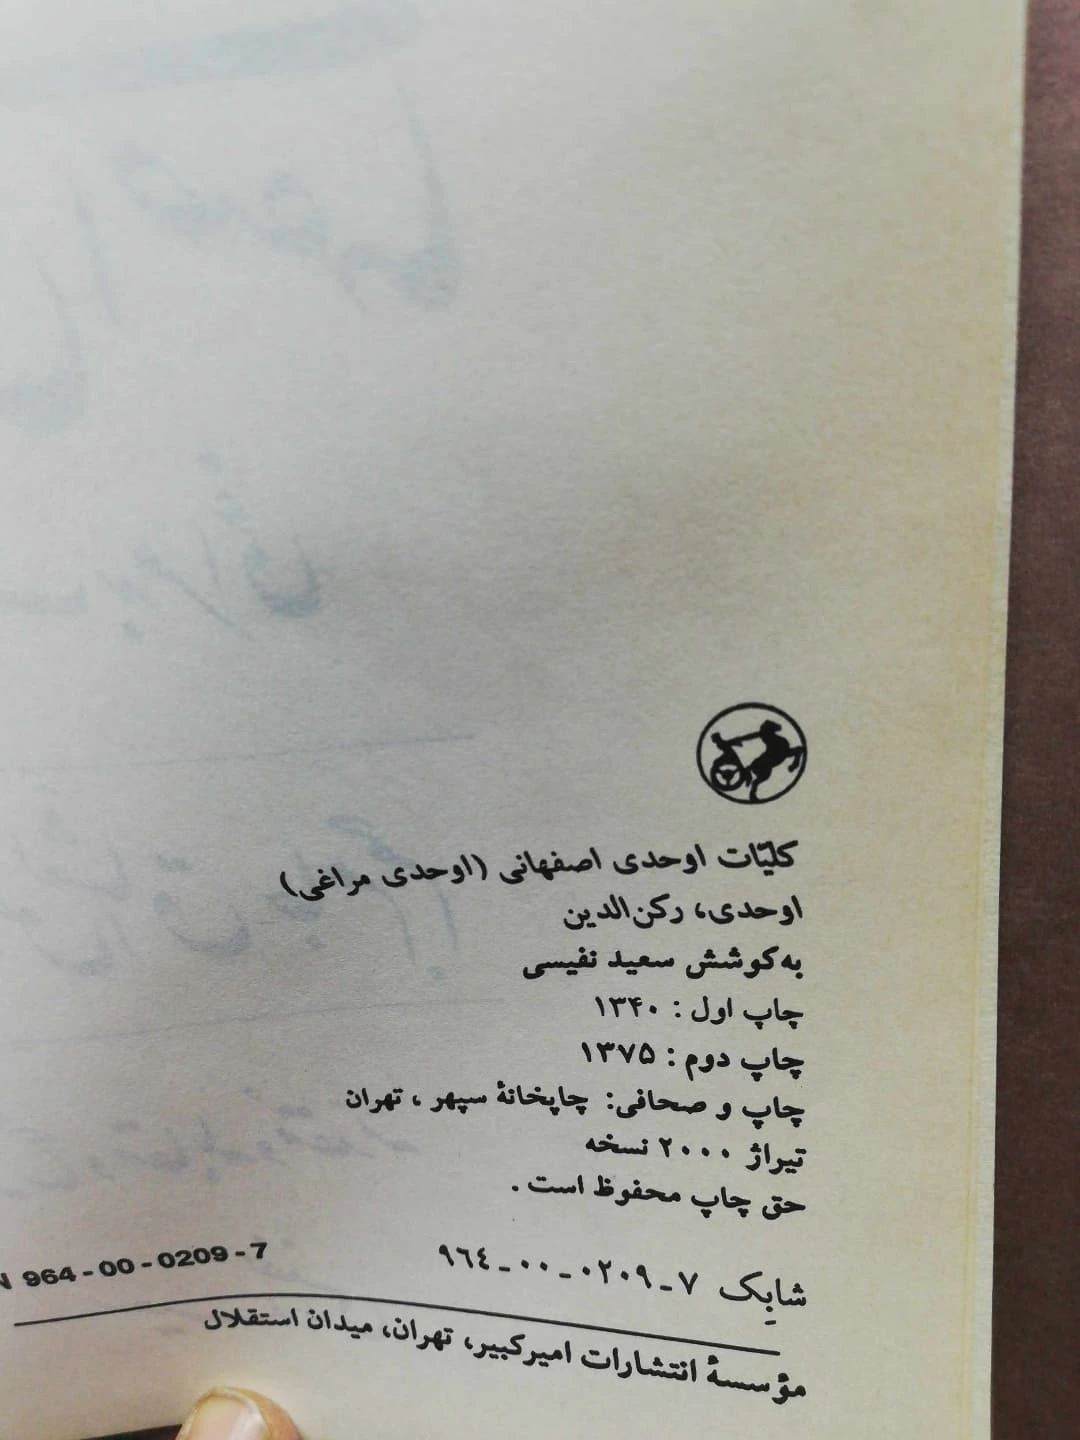 کلیّات اوحدی اصفهانی (اوحدی مراغی)
اوحدی، رکن‌الدین
به‌کوشش سعید نفیسی
چاپ اول : ۱۳۴۰
چاپ دوم : ۱۳۷۵
چاپ و صحافی: چاپخانهٔ سپهر ، تهران
تیراژ ۲۰۰۰ نسخه
حق چاپ محفوظ است .
شابک ۷-۰۲۰۹-۰۰-۹٦٤
N 964-00-0209-7
مؤسسهٔ انتشارات امیرکبیر، تهران، میدان استقلال